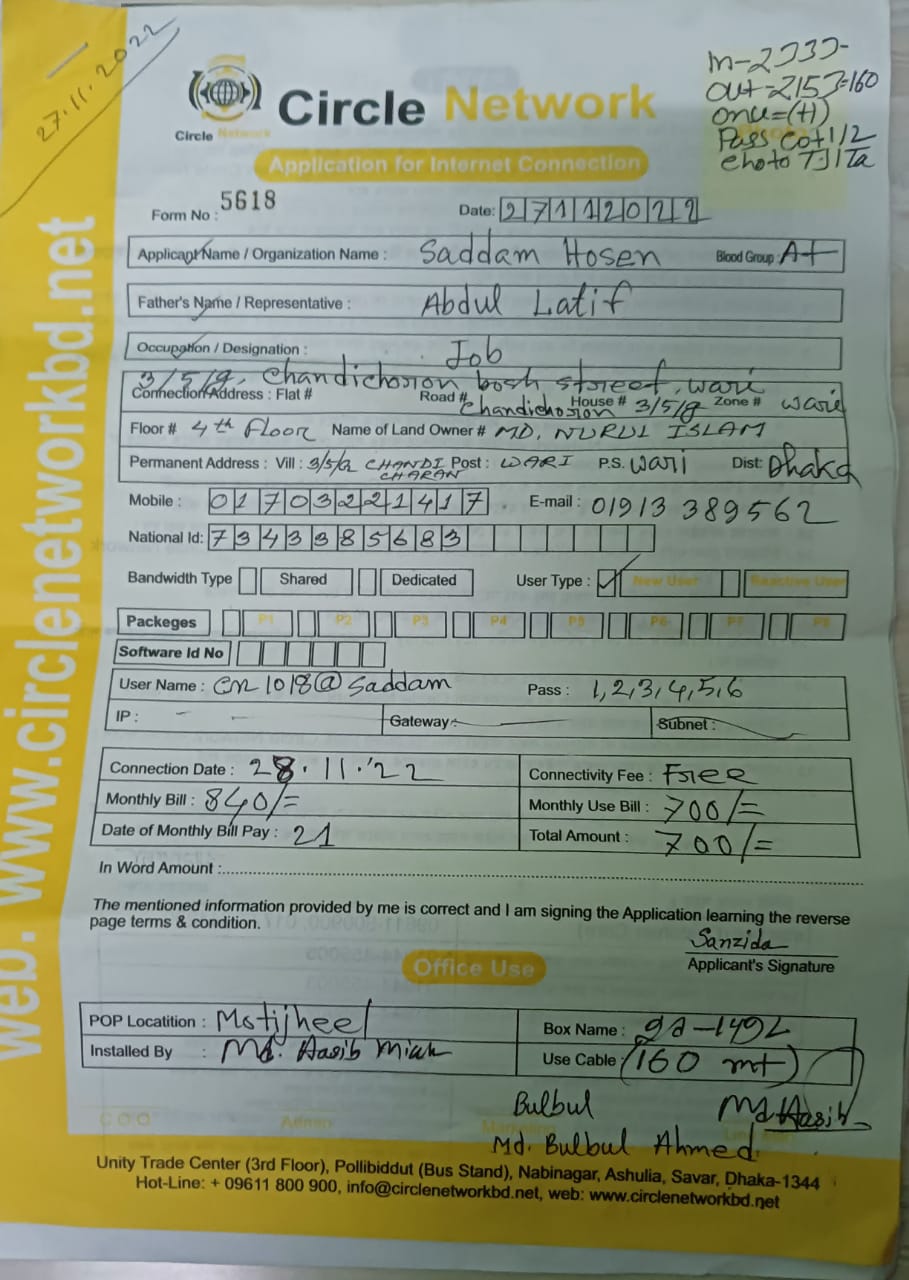 27.11.2022
Circle Network
Circle Network
Application for Internet Connection
in-2333-
out-2153=160
onu=(+1)
Pass
Form No : 5618
Date: 27112022
Applicant Name / Organization Name : Saddam Hosen Blood Group : A+
Father's Name / Representative : Abdul Latif
Occupation / Designation : Job
3/5/g, Chandichosion bosh street, wari
Connection Address : Flat # Road # Chandichosion House # 3/5/g Zone # warie
Floor # 4th Floor Name of Land Owner # MD, NURUL ISLAM
Permanent Address : Vill : 3/5/2 CHANDI CHARAN Post : WARI P.S. wari Dist: Dhaka
Mobile : 01703221417 E-mail : 01913 389562
National Id: 7343385683
Bandwidth Type Shared Dedicated User Type : New User Reactive User
Packeges P1 P2 P3 P4 P5 P6 P7 P8
Software Id No
User Name : cn1018@saddam Pass : 1,2,3,4,5,6
IP : Gateway : Subnet :
Connection Date : 28.11.'22 Connectivity Fee : Free
Monthly Bill : 840/= Monthly Use Bill : 700/=
Date of Monthly Bill Pay : 21 Total Amount : 700/=
In Word Amount :
The mentioned information provided by me is correct and I am signing the Application learning the reverse
page terms & condition.
Sanzida
Applicant's Signature
Office Use
POP Locatition : Motijheel Box Name :
Installed By : Md. Hasib Miah Use Cable : (160 mt)
Bulbul Md Hasib
C O O Admin Marketing
Md. Bulbul Ahmed
Unity Trade Center (3rd Floor), Pollibiddut (Bus Stand), Nabinagar, Ashulia, Savar, Dhaka-1344
Hot-Line: + 09611 800 900, info@circlenetworkbd.net, web: www.circlenetworkbd.net
web: www.circlenetworkbd.net